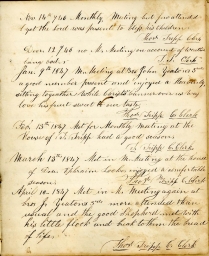 Nov 14th 1846 Monthly Meeting but few attended
yet the Lord was present to help his children
Thos Supp Clerk
Dec 12 1846 no M. Meeting on account of weather
being bad. T. S. Clerk
Jan. 9th 1847 M. Meeting at Bro John
a good number present and enjoyed a
sitting together while Christ
his sweet to our taste
Thos Supp C. Clerk
Feb. 13th 1847 Met for Monthly Meeting at the
house of T. Supp had a good season
T. Supp C. Clerk
March 13th 1847 Met in M. Meeting at the house
of Ephraim enjoyed a comfortable
season Thos Supp C. Clerk
April 10. 1847 Met in M. Meeting again at
bro Jo 5th more attended than
usual and the good Shepherd met with
his little flock and broke to them the bread
of life.
Thos Supp C. Clerk